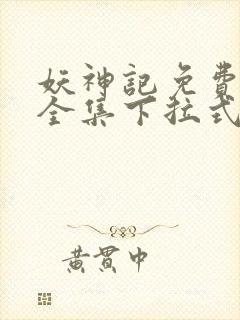 妖神記免費
全集下拉式
黃貫中